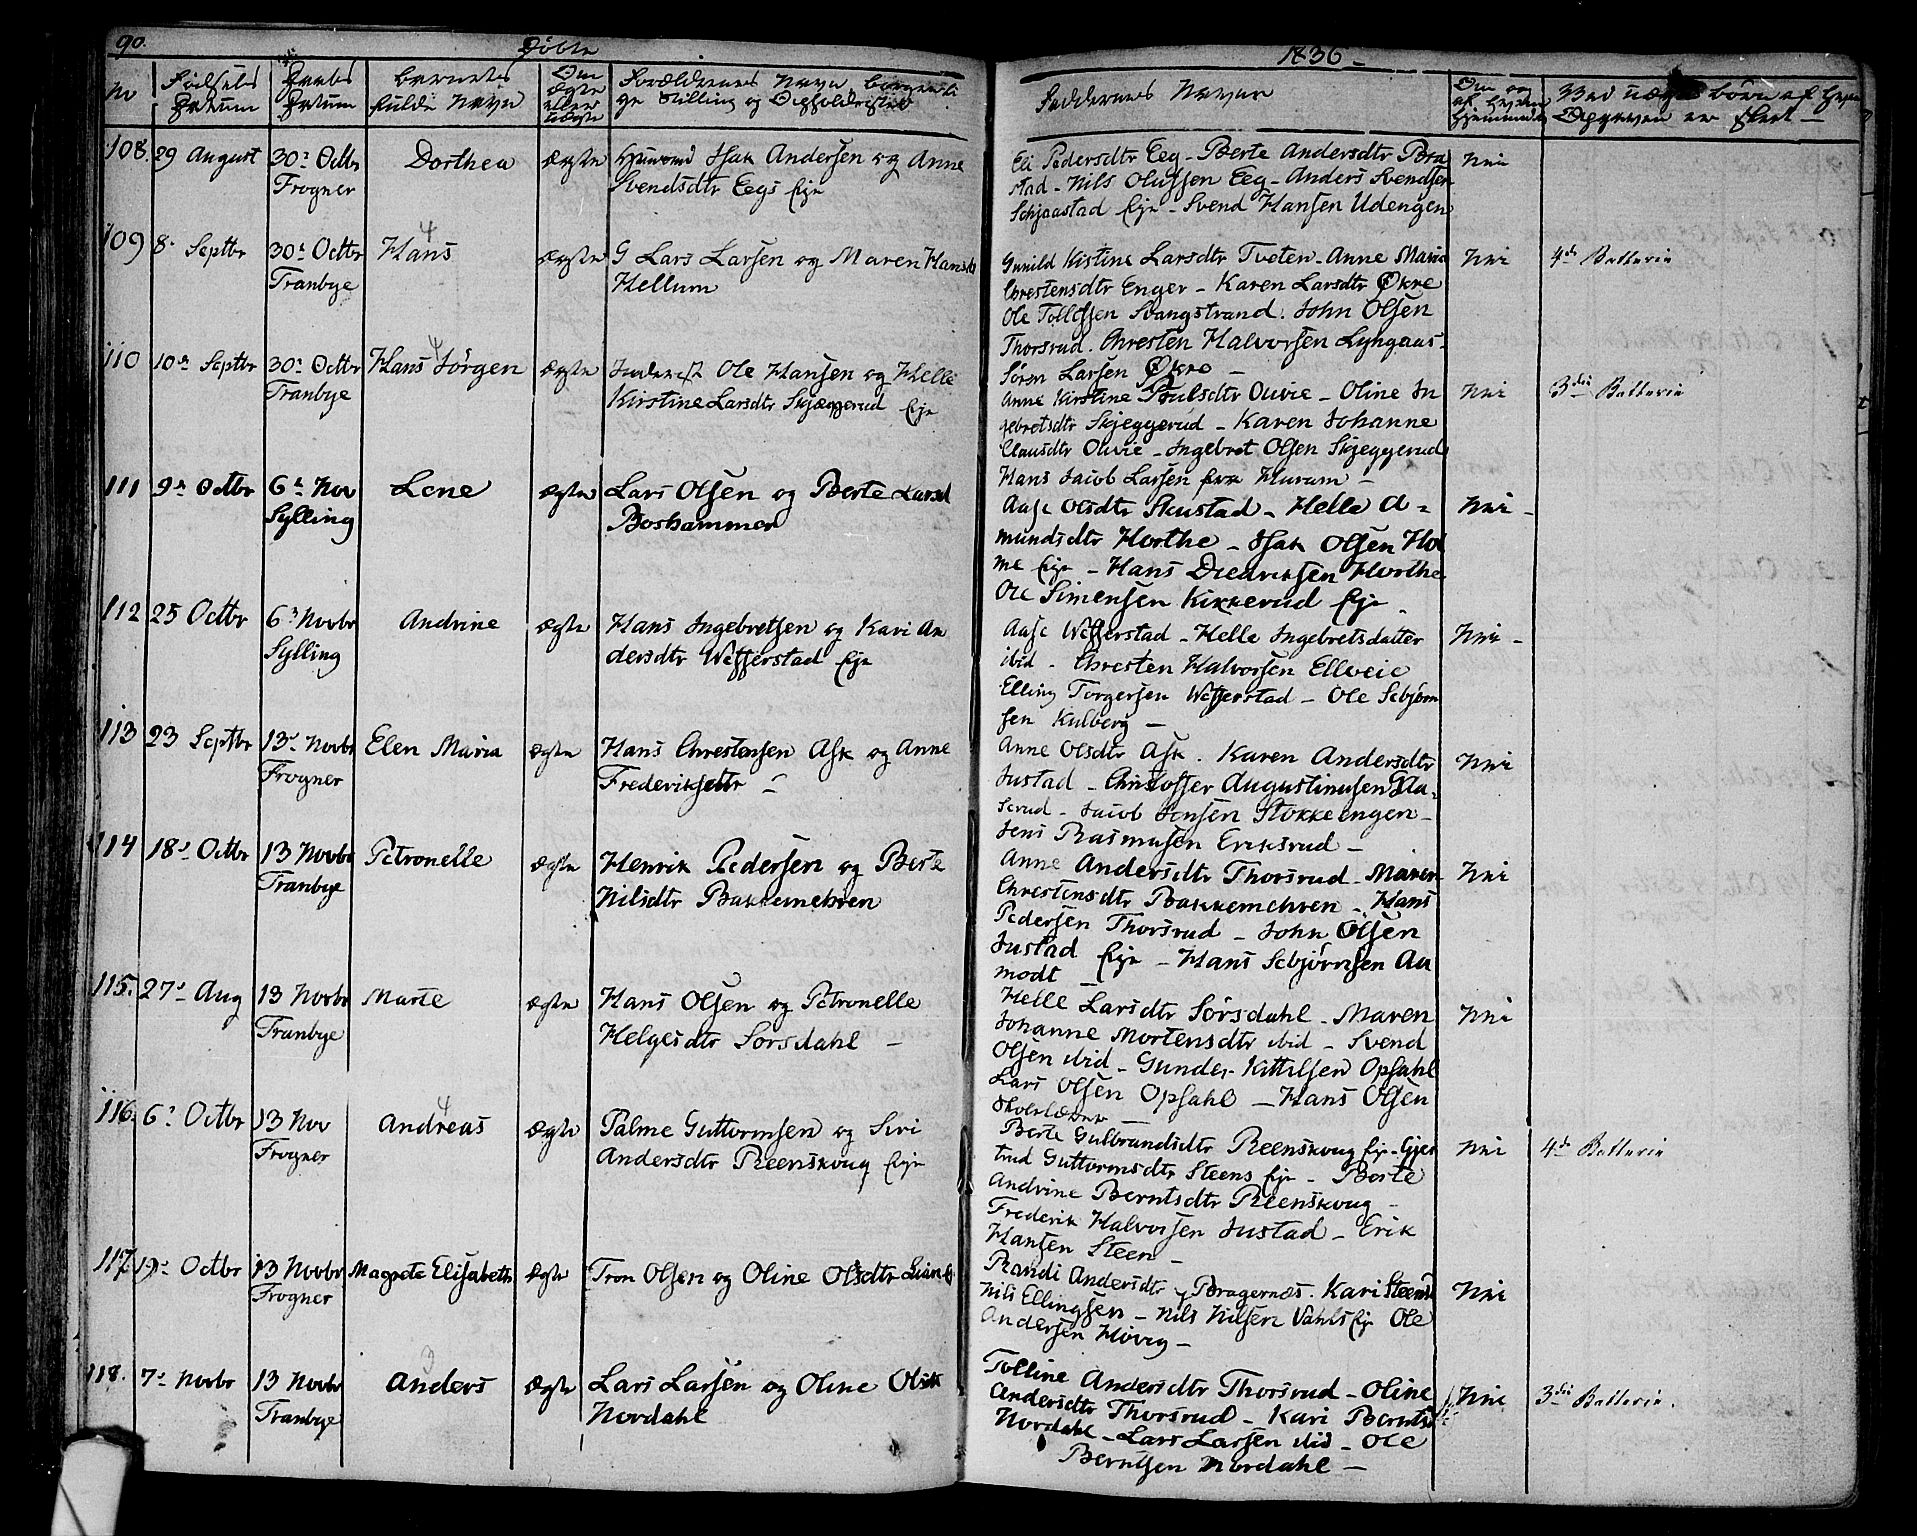 90.
Døbte
1836 -
No
Fødsels Datum
Daabs Datum
Barnets fulde Navn
Om Ægte eller uægte
Forældrenes Navn, borgerlige Stilling og Opholdssted
Faddernes Navne
Om og af hvem hjemmedøbt
108. 29 August
30te Octbr
Frogner
Dorthea
Ægte
Isak Andersen og Anne
Svendsdtr Eegs Eje
Eli Pedersdtr Eeg - Berte Andersdtr Bra
stad - Nils Olussen Eeg - Anders Svendsen
Schjaastad Eje - Svend Hansen Udengen
Nei
109 8. Septbr
30te Octbr
Tranbye
4
Hans
Ægte
G Lars Larsen og Maren Hansdtr
Hellum
Gunild Kistine Larsdtr Tveten - Anne Maria
Chrestensdtr Enger - Karen Larsdtr Økre
Ole Tollefsen Svangstrand. John Olsen
Thorsrud. Chresten Halvorsen Lyngaas -
Sören Larsen Økre -
Nei
4de Batterie
110 10de Septbr
30te Octbr
Tranbye
4
Hans Jörgen
Ægte
Inderst Ole Hansen og Helle
Kirstine Larsdtr Skjæggerud Eje
Anne Kirstine Poulsdtr Ouvie - Oline In
gebretsdtr Skjeggerud - Karen Johanne
Clausdtr Ouvie - Ingebret Olsen Skjeggerud
Hans Jacob Larsen fra Hurum -
Nei
3die Batterie
111 9de Octbr
6te Nov
Sylling
Lene
Ægte
Lars Olsen og Berte Larsd
Boshammer
Aase Olsdtr Skustad - Helle A =
mundsdtr Horthe - Isak Olsen Hol
me Eje - Hans Diedriksen Horthe
Ole Simensen Kikkerud Eje -
Nei -
112 25 Octbr
6te Novbr
Sylling
Andrine
Ægte
Hans Ingebretsen og Kari An
dersdtr Wefferstad Eje
Aase Wefferstad - Helle Ingebretsdatter
ibid - Chresten Halvorsen Ellveie
Elling Torgersen Wefferstad - Ole Sebjørn
sen Kulberg -
Nei -
113 23 Septbr
13de Novbr
Frogner
Elen Maria
Ægte
Hans Chrestensen Ask og Anne
Frederiksdtr -
Anne Olsdtr Ask. Karen Andersdtr
Justad - Christoffer Augustinusen Gla =
serud - Jacob Jensen Stokkeengen -
Jens Rasmusen Eriksrud -
Nei
114 18de Octbr
13 Novbr
Tranbye
Petronelle
Ægte
Henrik Pedersen og Berte
Nilsdtr Bakkemehren
Anne Andersdtr Thorsrud - Maren
Chrestensdtr Bakkemehren - Hans
Pedersen Thorsrud - John Olsen
Justad Eje - Hans Sebjørnsen Aa
modt -
Nei
115. 27de Aug
13 Novbr
Tranbye
Marte
Ægte
Hans Olsen og Petronelle
Helgesdtr Sørsdahl -
Helle Larsdtr Sørsdahl - Maren
Johanne Mortensdtr ibid - Svend
Olsen ibid - Gunder Kittilsen Opsahl
Lars Olsen Opsahl - Hans Olsen
Skolelærer
Nei
116. 6te Octbr
13 Nov
Frogner
4
Andreas
Ægte
Palme Guttormsen og Siri
Andersdtr Reenskoug Eje
Berte Gulbrandsdtr Reenskoug Eje - Gjer
trud Guttormsdtr Steens Eje - Berte
Andrine Berntsdtr Reenskoug -
Frederik Halvorsen Justad - Erik
Hansen Steen -
Nei
4de Batterie
117 19de Octbr
13 Novbr
Frogner
Magrete Elisabeth
Ægte
Tron Olsen og Oline Olsdtr
Randi Andersdtr Bragernæs. Kari Steens
Nils Ellingsen - Nils Nilsen Vahls Eje Ole
Andersen Høvig -
Nei
118. 7de Novbr
13 Novbr
Tranbye
3
Anders
Ægte
Lars Larsen og Oline Olsdtr
Nordahl
Tolline Andersdtr Thorsrud - Oline
Andersdtr Thorsrud - Kari Berntsd
Nordahl - Lars Larsen ibid - Ole
Berntsen Nordahl -
Nei
3die Batterie.